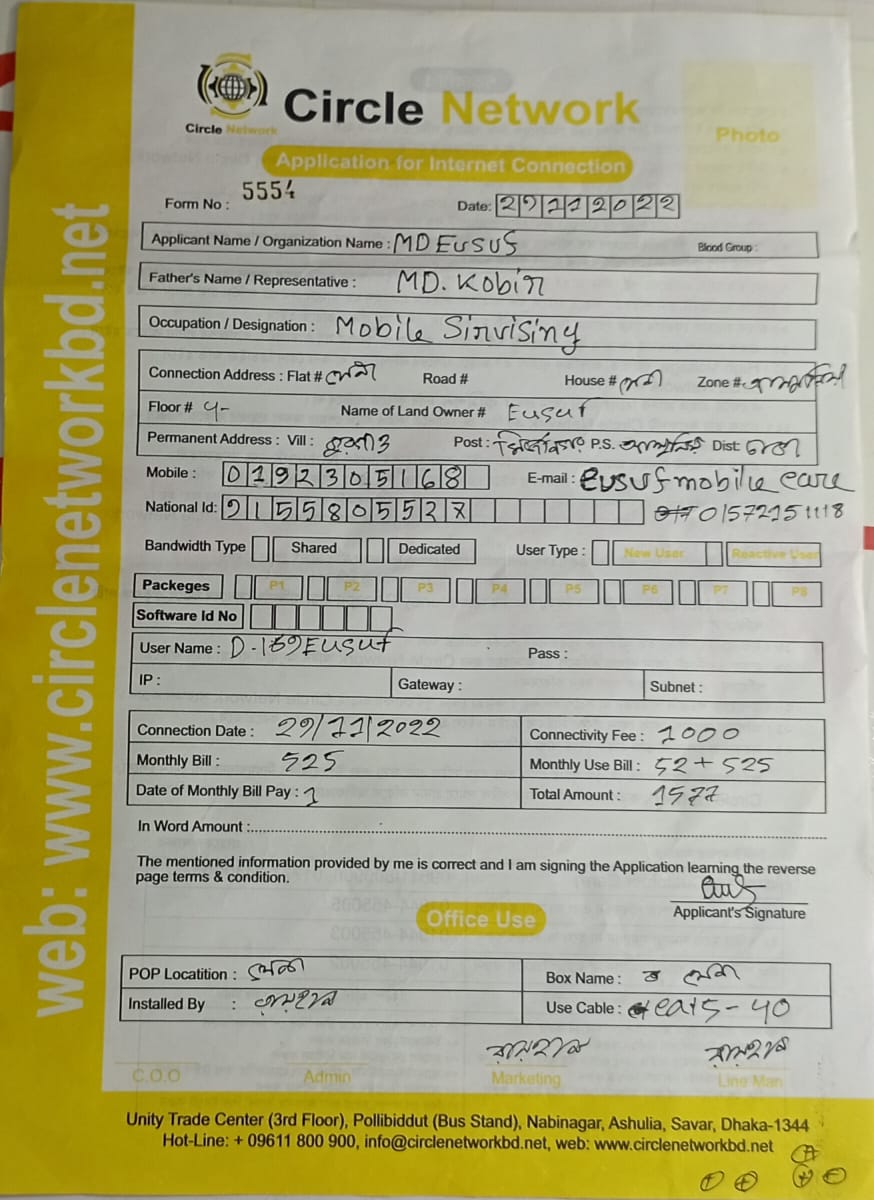 Circle Network
Circle Network
Photo
Application for Internet Connection
Form No : 5554
Date: 29112022
Applicant Name / Organization Name : MD Eusuf
Blood Group :
Father's Name / Representative : MD. Kobir
Occupation / Designation : Mobile Sirvising
Connection Address : Flat # Road # House # Zone #
Floor # 4- Name of Land Owner # Eusuf
Permanent Address : Vill : Post : P.S. Dist: ঢাকা
Mobile : 0192305168 E-mail : eusufmobile care
National Id: 01572151118
Bandwidth Type Shared Dedicated User Type : New User Reactive User
Packeges P1 P2 P3 P4 P5 P6 P7 P8
Software Id No
User Name : Pass :
IP : Gateway : Subnet :
Connection Date : 29/11/2022 Connectivity Fee : 1000
Monthly Bill : 525 Monthly Use Bill : 52 + 525
Date of Monthly Bill Pay : 1 Total Amount : 1577
In Word Amount :
The mentioned information provided by me is correct and I am signing the Application learning the reverse
page terms & condition.
Applicant's Signature
Office Use
POP Locatition : Box Name :
Installed By : Use Cable : cat5-40
C.O.O Admin Marketing Line Man
Unity Trade Center (3rd Floor), Pollibiddut (Bus Stand), Nabinagar, Ashulia, Savar, Dhaka-1344
Hot-Line: + 09611 800 900, info@circlenetworkbd.net, web: www.circlenetworkbd.net
web: www.circlenetworkbd.net